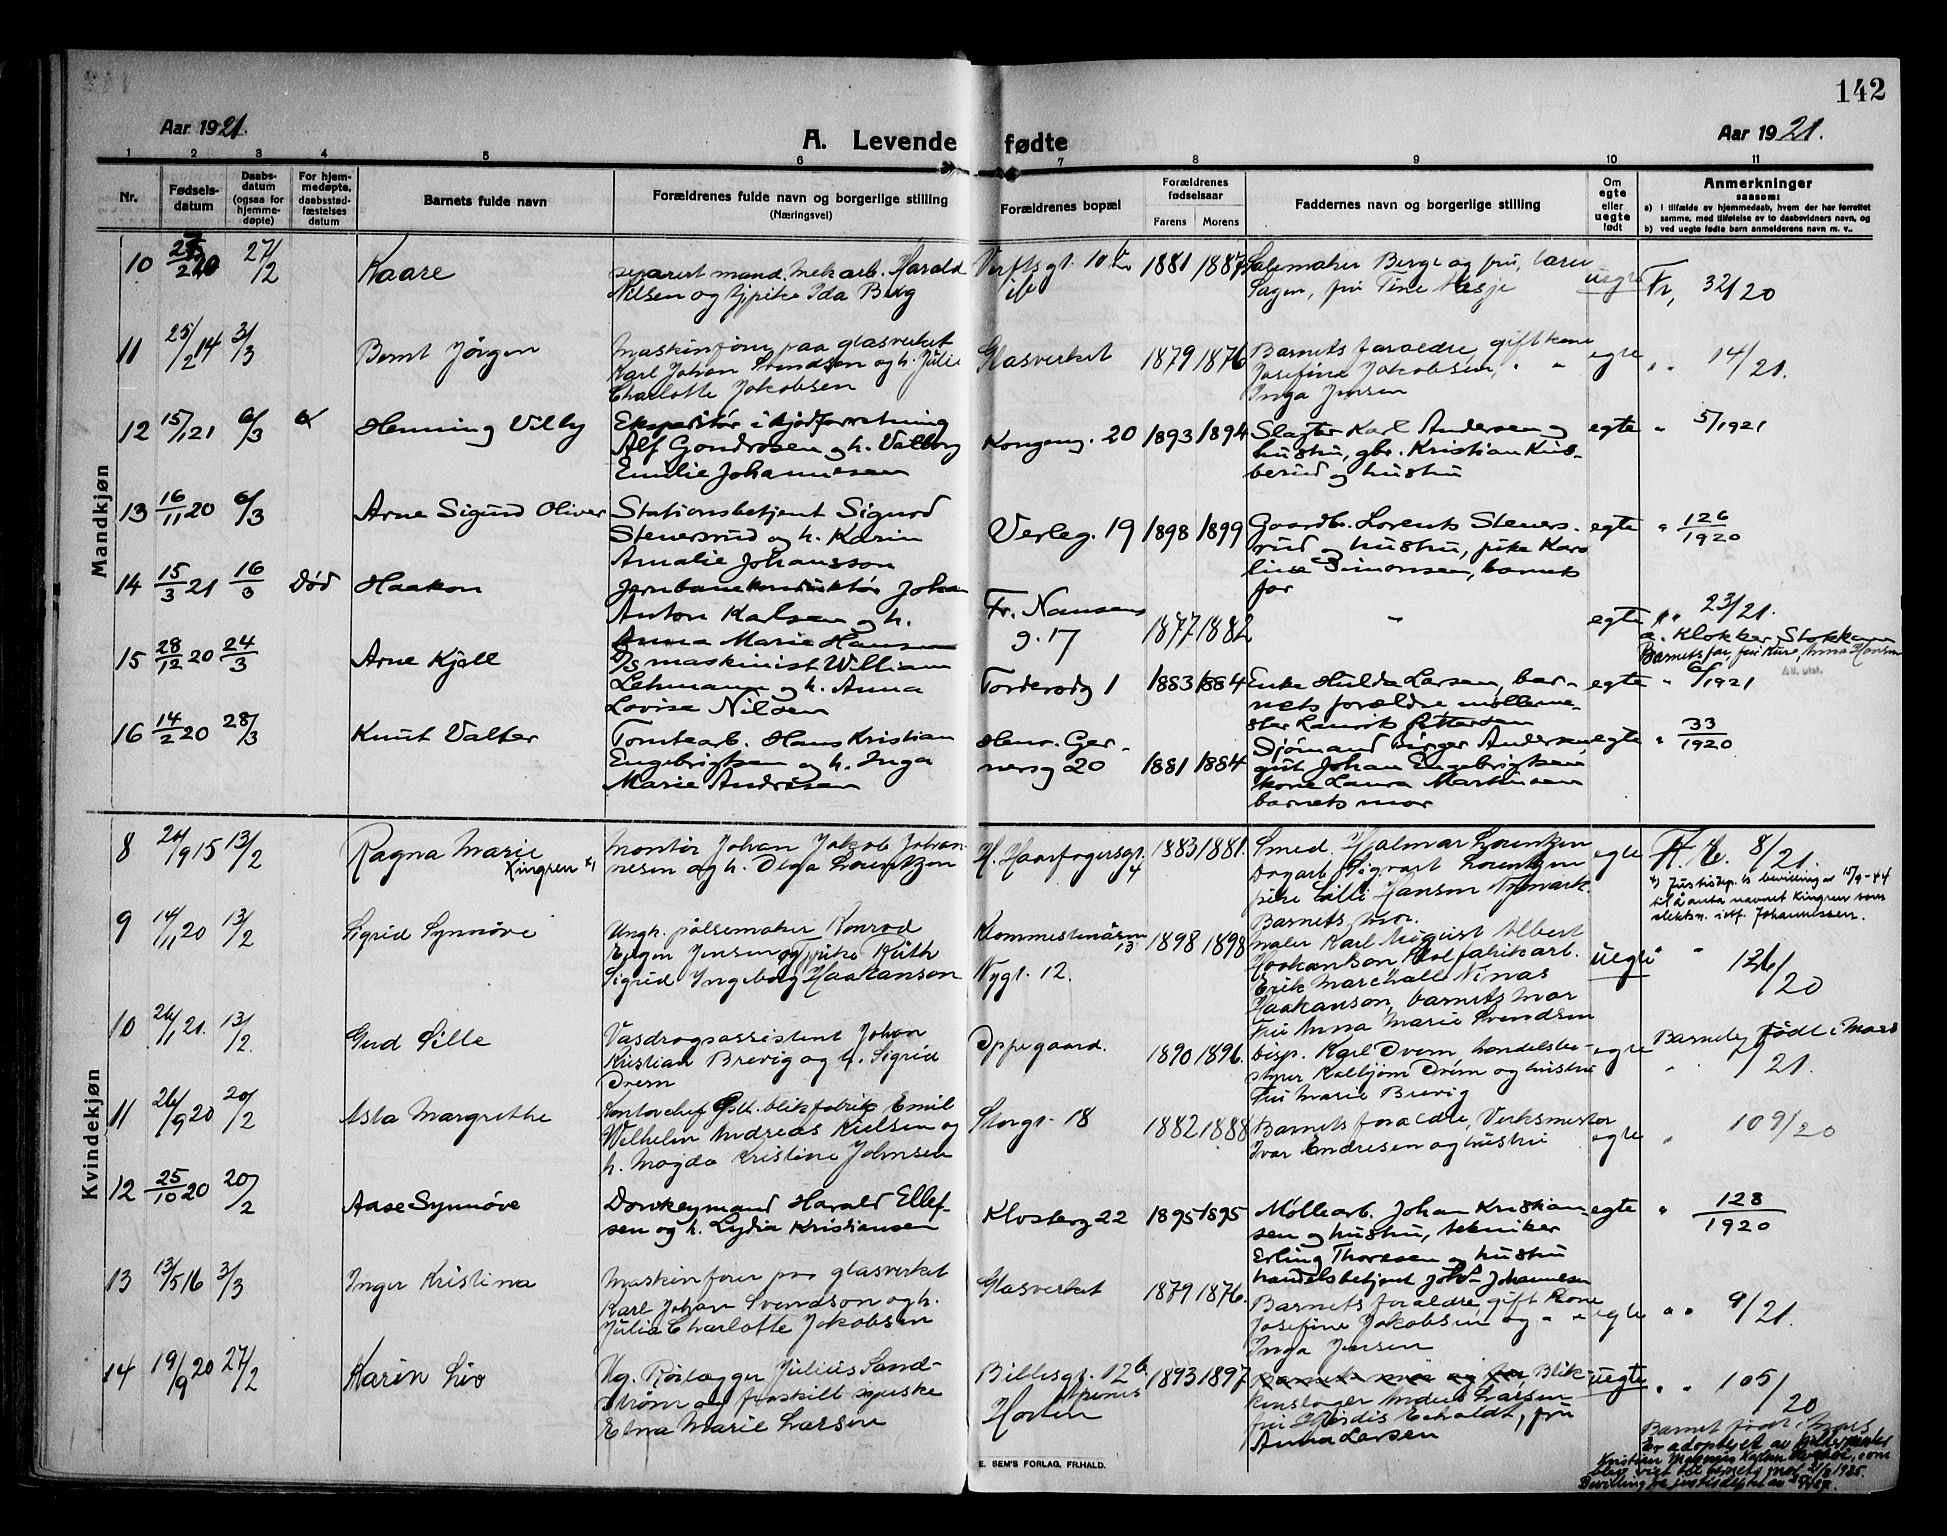 142
Aar 1921.
A. Levende fødte
Aar 1921.
1 2 3 4 5 6 7 8 9 10 11
Nr.
Fødsels-
datum
Daabs-
datum
(ogsaa for
hjemme-
døpte)
For hjem-
medøpte,
daabsstad-
fæstelses
datum
Barnets fulde navn
Forældrenes fulde navn og borgerlige stilling
(Næringsvei)
Forældrenes bopæl
Forældrenes
fødselsaar
Farens Morens
Faddernes navn og borgerlige stilling
Om
egte
eller
uegte
født
Anmerkninger
saasom:
a) i tilfælde av hjemmedaab, hvem der har forrettet
samme, med tilføielse av to daabsvidners navn, og
b) ved uegte fødte barn anmelderens navn m. v..
Mandkjøn
10 27/12 Kaare
separert mand. Mek.arb. Harald
Nilsen og pike Ida Berg
Verftsgt. 10
1881 1887
Salemaker Berge og fru, lærer
Sagen, fru Tine Næsje
uegte
Fr. 32/20
11 25/2 14 3/3 Bernt Jørgen
Maskinfører paa glasverket
Karl Johan Svendsen og h. Julie
Charlotte Jakobsen
Glasverket
1879 1876
Barnets forældre, gift kone
Josefine Jakobsen, " "
Inga Jensen
egte
" 14/21.
12 15/1 21 6/3 Henning Vilby
Ekspeditør i kjødforretning
Alf Gondrosen og h. Valborg
Emilie Johannesen
Kongeng. 20
1893 1894
Slagter Karl Andersen og
hustru, gbr. Kristian Kris-
berud og hustru
egte
" 5/1921
13 16/11 20 6/3 Arne Sigurd Oliver
Stationsbetjent Sigurd
Stenersrud og h. Karin
Amalie Johansson
Verleg. 19
1898 1899
Gaardbr. Lorents Steners-
rud og hustru, pike Karo
line Simonsen, barnets
far
egte
" 126/1920
14 15/3 21 16/3 Død Haakon
Jernbanekonduktør Johan
Anton Karlsen og h.
Anna Marie Hansen
Fr. Nansens
g. 17
1877 1882
"
egte
" 23/21.
a. Klokker Stokken
Barnets far, fru Kure, Anna Hansen
15 28/12 20 24/3 Arne Kjell
Maskinist William
Lehmann og h. Anna
Lovise Nilsen
Torderødg 1
1883 1884
Enke Hulda Larsen, bar-
nets forældre møllerme-
ster Laurits Pettersen
egte
" 6/1921
Att. utst.
16 14/2 20 28/3 Knut Valter
Tomtearb. Hans Kristian
Engebrigtsen og h. Inga
Marie Andresen
Henr. Ger-
nersg 20
1881 1884
Sjømand Birger Andersen,
gut Johan Engebrigtsen
kone Laura Martinsen
barnets mor
egte
" 33/1920
Kvindekjøn
8 20/9 15 13/2 Ragna Marie
Kingren *)
Montør Johan Jakob Johan-
nesen og h. Olga Lorentzen
H. Haarfagersgt.
4
1883 1881.
Smed Hjalmar Lorentzen
Dagarb. Sigvart Lorentzen
pike Lilli Hansen Nymark.
Barnets mor.
egte
8/21.
*) Justisdep.ts bevilling av 15/9-44
til å anta navnet Kingren som
slektsn. istf. Johannessen.
9 14/11 20 13/2 Sigrid Synnøve
Ungk. pølsemaker Konrad
Jensen og pike Ruth
Sigrid Ingeborg Haakanson
13
Nygt. 12.
1898 1898
Maler Karl August Albert
Haakanson
Erik Marchall Ninas
Haakanson, barnets mor
uegte
" 126/20
10 26/1 21. 13/2. Gud Lille
Vasdragsassistent Johan
Kristian Brevig og h. Sigrid
Drem
Oppegaard.
1890 1896.
Fru Anna Marie Svendsen
bisp. Karl Drem, handelsbe-
styrer Kolbjørn Drem og hustru
Fru Marie Brevig
egte
Barnet født i Moss
" 7/21.
11 26/9 20 20/2 Asta Margrethe
Kontorchef blikfabrik Emil
Wilhelm Andreas Nielsen og
h. Magda Kristine Johnsen
Storgt. 18
1882 1888
Barnets forældre, Verksmester
Ivar Endresen og hustru
egte
" 109/20
12 25/10 20 20/2 Aase Synnøve
Donkeymand Harald Ellef-
sen og h. Lydia Kristiansen
Klosterg 22
1895 1895
Møllearb. Johan Kristian-
sen og hustru, tekniker
Erling Thoresen og hustru
handelsbetjent Johs Johannesen
egte
" 128/1920
13 13/5 16 3/3 Inger Kristina
Maskinfører paa glasverket
Karl Johan Svendson og h.
Julia Charlotte Jakobsen
Glasverket
1879 1876.
Barnets forældre, gift kone
Josefine Jakobsen og " "
Inga Jensen
egte
" " 9/21.
14 19/9 20 27/2 Karin Liv
Ug. Rørlægger Julius Sand-
strøm og fraskilt syerske
Elna Marie Larsen
Billesgt. 12b
Horten
1893 1897
Barnets mor og far Blik-
kenslager Anders Larsen
fru Hjørdis Echoldt, fru
Anna Larsen
uegte
" " 105/20
Barnet født i Moss
Er adoptert av
Kristian Magnus Karlsen
blev viet til barnets mor 21/8 1925.
Bevilling fra justisdept av
E. SEM'S FORLAG, FR.HALD.